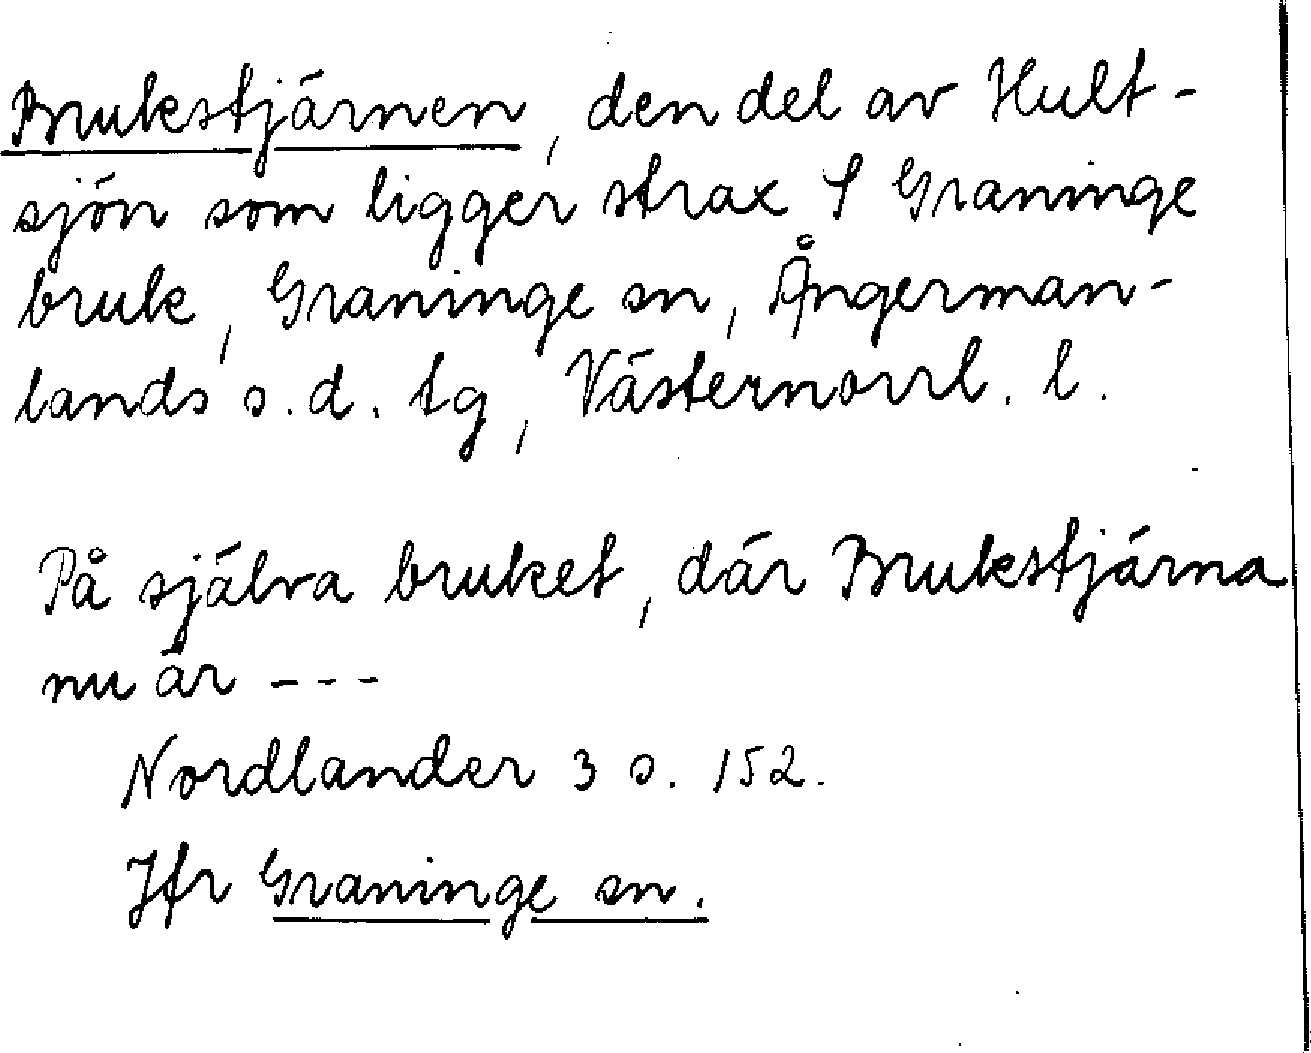 Brukstjärnen, den del av Hult-
sjön som ligger strax S Graninge
bruk, Graninge sn, Ångerman-
lands s.d. tg, Västernorrl. l.
På själva bruket, där Brukstjärna
nu är ---
Nordlander 3 s. 152.
Jfr Graninge sn.